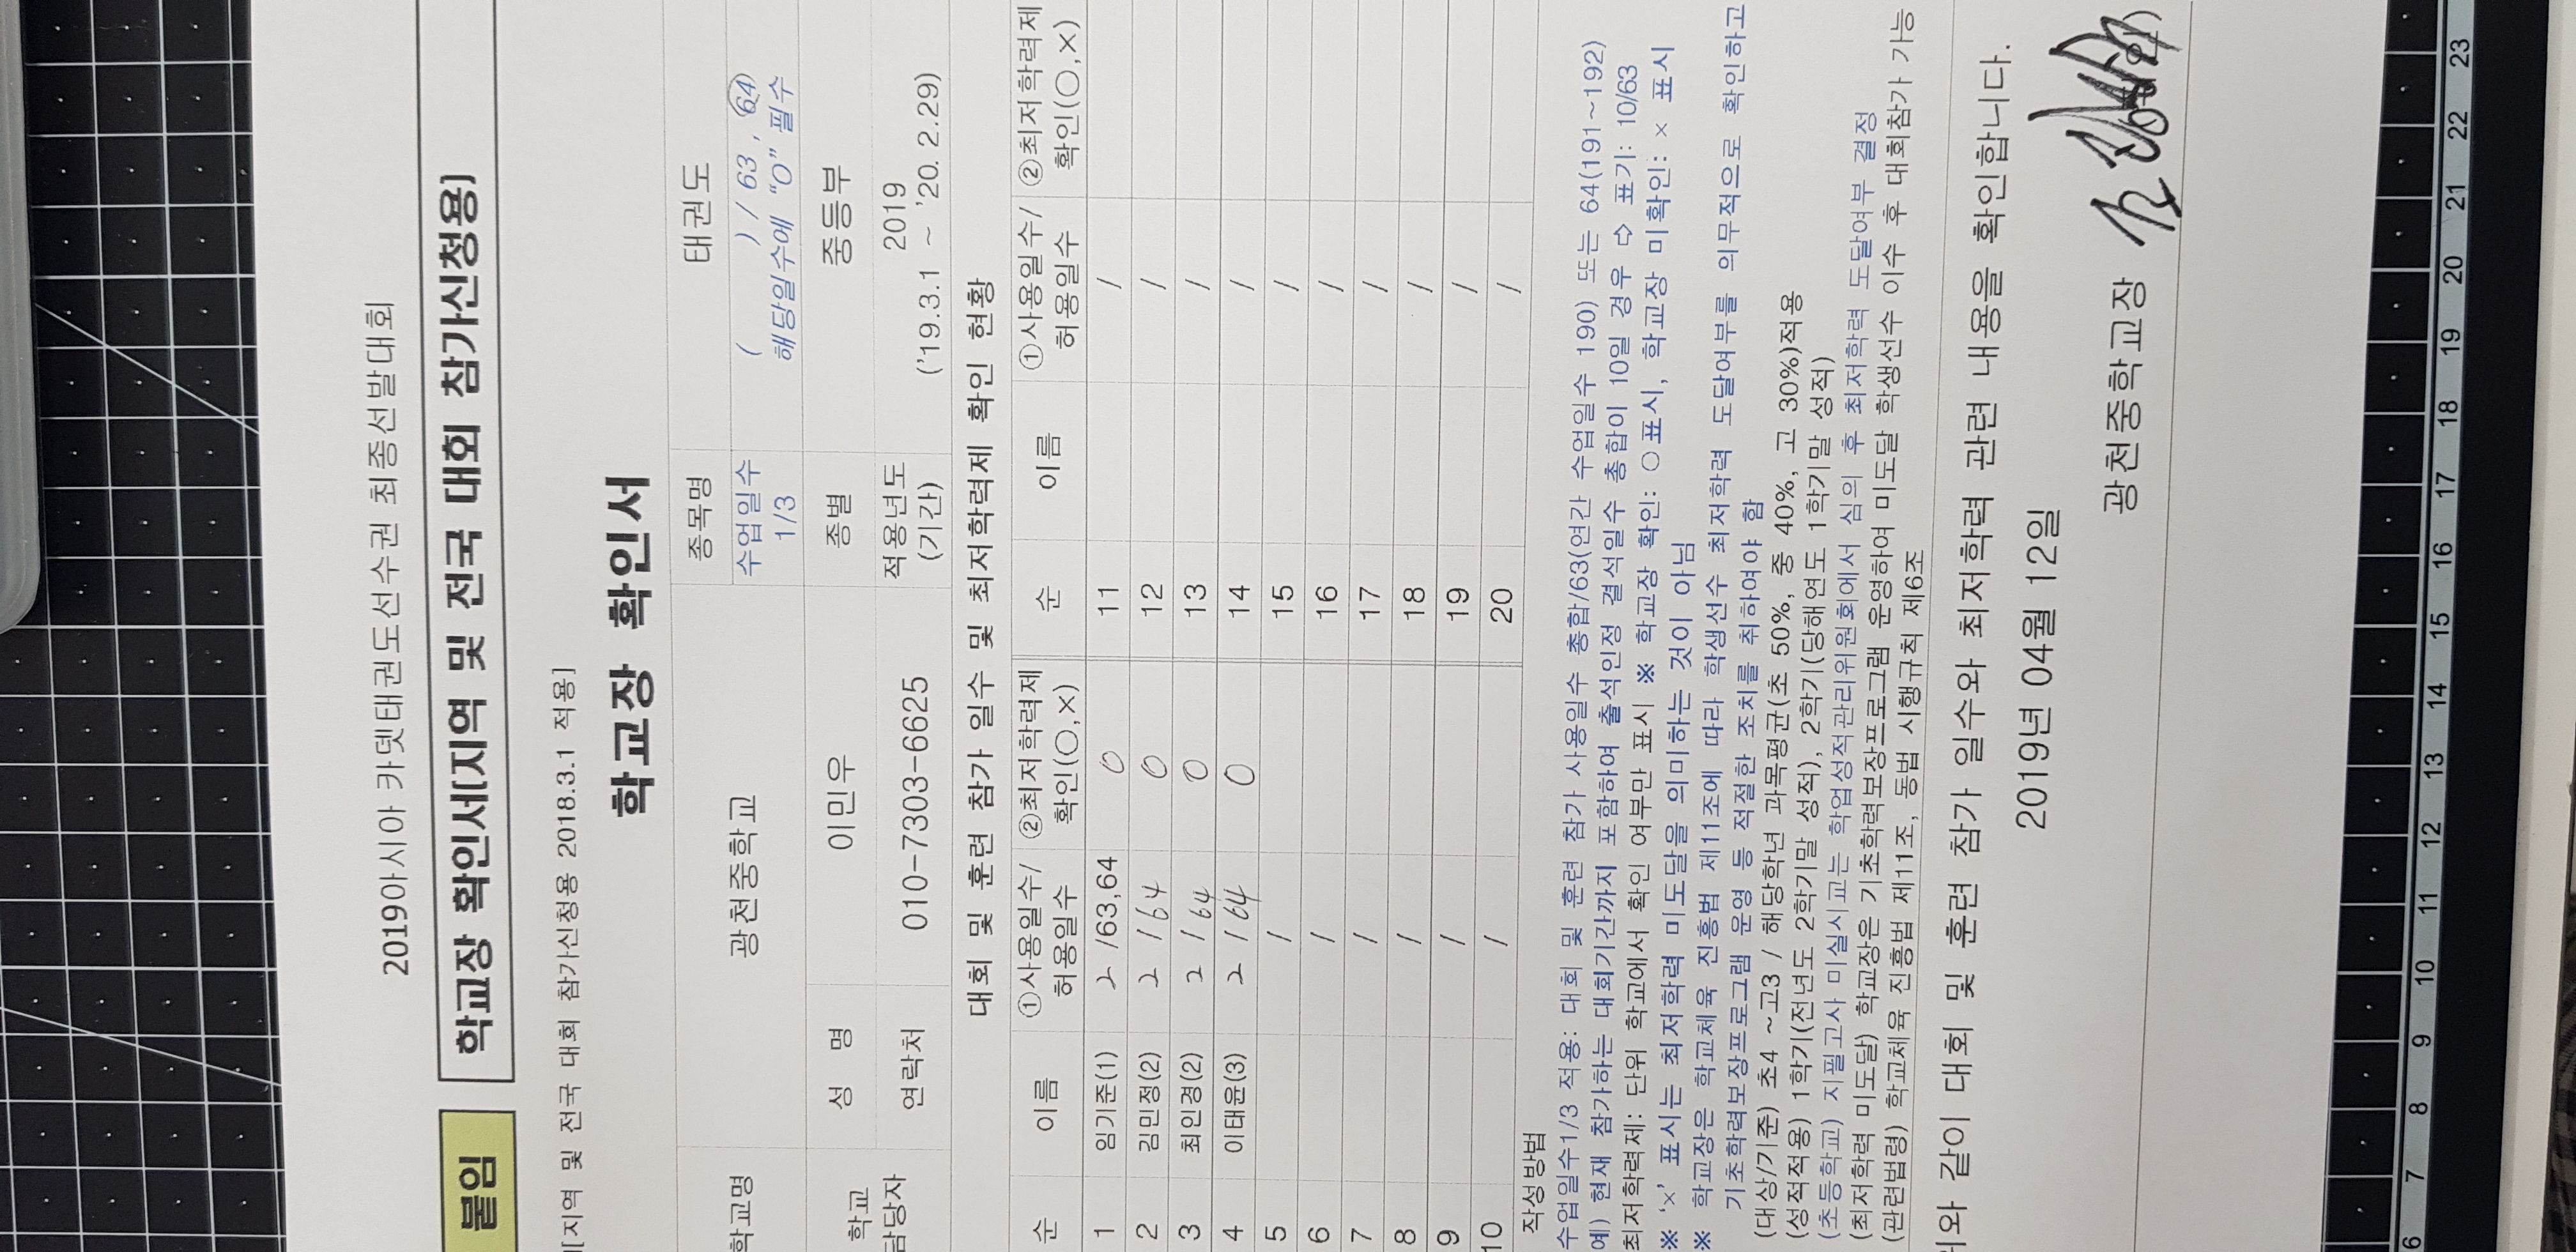 2019아시아 카뎃태권도선수권 최종선발대회
붙임 학교장 확인서[지역 및 전국 대회 참가신청용]
[지역 및 전국 대회 참가신청용 2018.3.1 적용]
학교장 확인서
학교명 광천중학교 종목명 태권도
수업일수 1/3 ( ) / 63 , 64
해당일수에 "O" 필수
학교 담당자 성 명 이민우 종별 중등부
연락처 010-7303-6625 적용년도 (기간) 2019 ('19.3.1 ~ '20. 2.29)
대회 및 훈련 참가 일수 및 최저학력제 확인 현황
순 이름 ①사용일수/허용일수 ②최저학력제 확인(○,×) 순 이름 ①사용일수/허용일수 ②최저학력제 확인(○,×)
1 임기준(1) 2 /63,64 O 11 /
2 김민정(2) 2 / 64 O 12 /
3 최인경(2) 2 / 64 O 13 /
4 이태윤(3) 2 / 64 O 14 /
5 / 15 /
6 / 16 /
7 / 17 /
8 / 18 /
9 / 19 /
10 / 20 /
작성방법
수업일수1/3 적용: 대회 및 훈련 참가 사용일수 총합/63(연간 수업일수 190) 또는 64(191~192)
예) 현재 참가하는 대회기간까지 포함하여 출석인정 결석일수 총합이 10일 경우 ⇨ 표기: 10/63
최저학력제: 단위 학교에서 확인 여부만 표시 ※ 학교장 확인: ○표시, 학교장 미확인: × 표시
※ '×' 표시는 최저학력 미도달을 의미하는 것이 아님
※ 학교장은 학교체육 진흥법 제11조에 따라 학생선수 최저학력 도달여부를 의무적으로 확인하고
기초학력보장프로그램 운영 등 적절한 조치를 취하여야 함
(대상/기준) 초4 ~고3 / 해당학년 과목평균(초 50%, 중 40%, 고 30%)적용
(성적적용) 1학기(전년도 2학기말 성적), 2학기(당해연도 1학기말 성적)
(초등학교) 지필고사 미실시교는 학업성적관리위원회에서 심의 후 최저학력 도달여부 결정
(최저학력 미도달) 학교장은 기초학력보장프로그램 운영하여 미도달 학생선수 이수 후 대회참가 가능
(관련법령) 학교체육 진흥법 제11조, 동법 시행규칙 제6조
위와 같이 대회 및 훈련 참가 일수와 최저학력 관련 내용을 확인합니다.
2019년 04월 12일
광천중학교장
6 7 8 9 10 11 12 13 14 15 16 17 18 19 20 21 22 23